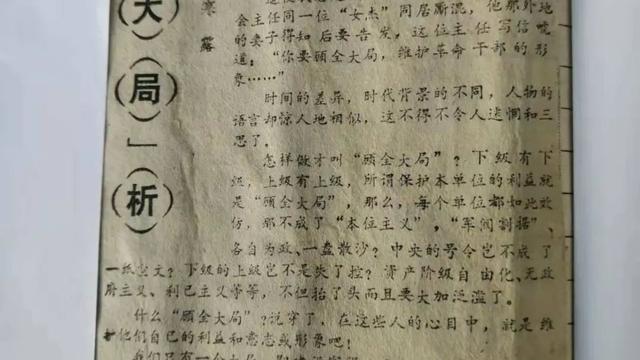 大
局
」
析
寒
露
会主任同一位“女杰”同居厮混，他那外地
的妻子得知后要告发，这位主任写信唬
道：“你要顾全大局，维护革命干部的形
象……”
时间的差异，时代背景的不同，人物的
语言却惊人地相似，这不得不令人迷惘和三
思了。
怎样做才叫“顾全大局”？下级有下
级，上级有上级，所谓保护本单位的利益就
是“顾全大局”，那么，每个单位都如此效
仿，那不成了“本位主义”，“军阀割据”、
各自为政、一盘散沙？中央的号令岂不成了
一纸空文？下级的上级岂不是失了控？资产阶级自由化、无政
府主义、利己主义等等，不但抬了头而且要大加泛滥了。
什么“顾全大局”？说穿了，在这些人的心目中，就是维
护他们自己的利益和意志或形象吧！
我们只有一个大局，